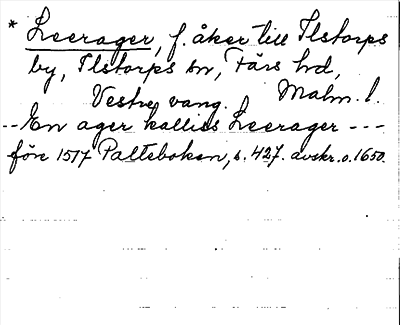 * Leerager, f. åker till Ilstorps
by, Ilstorps sn, Färs hd,
Vestre vang. Malm. l.
-- En ager kallies Leerager ---
före 1517 Palteboken, s. 427. avskr. o. 1650.